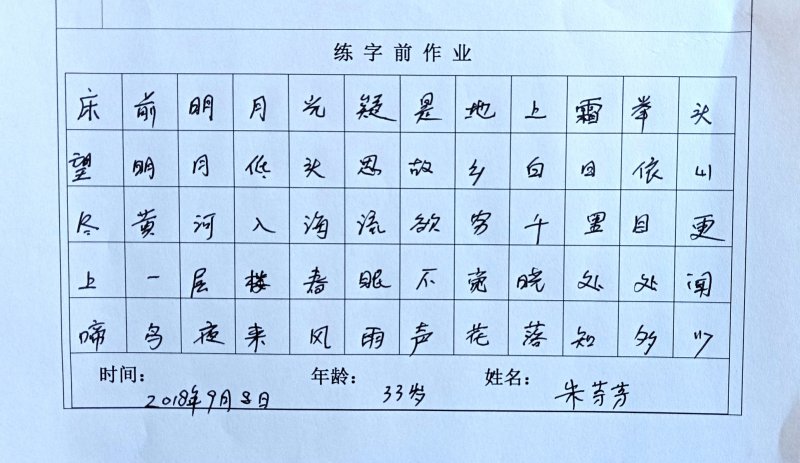 练字前作业
床前明月光疑是地上霜举头
望明月低头思故乡白日依山
尽黄河入海流欲穷千里目更
上一层楼春眠不觉晓处处闻
啼鸟夜来风雨声花落知多少
时间: 年龄: 姓名:
2018年9月8日 33岁 朱芳芳